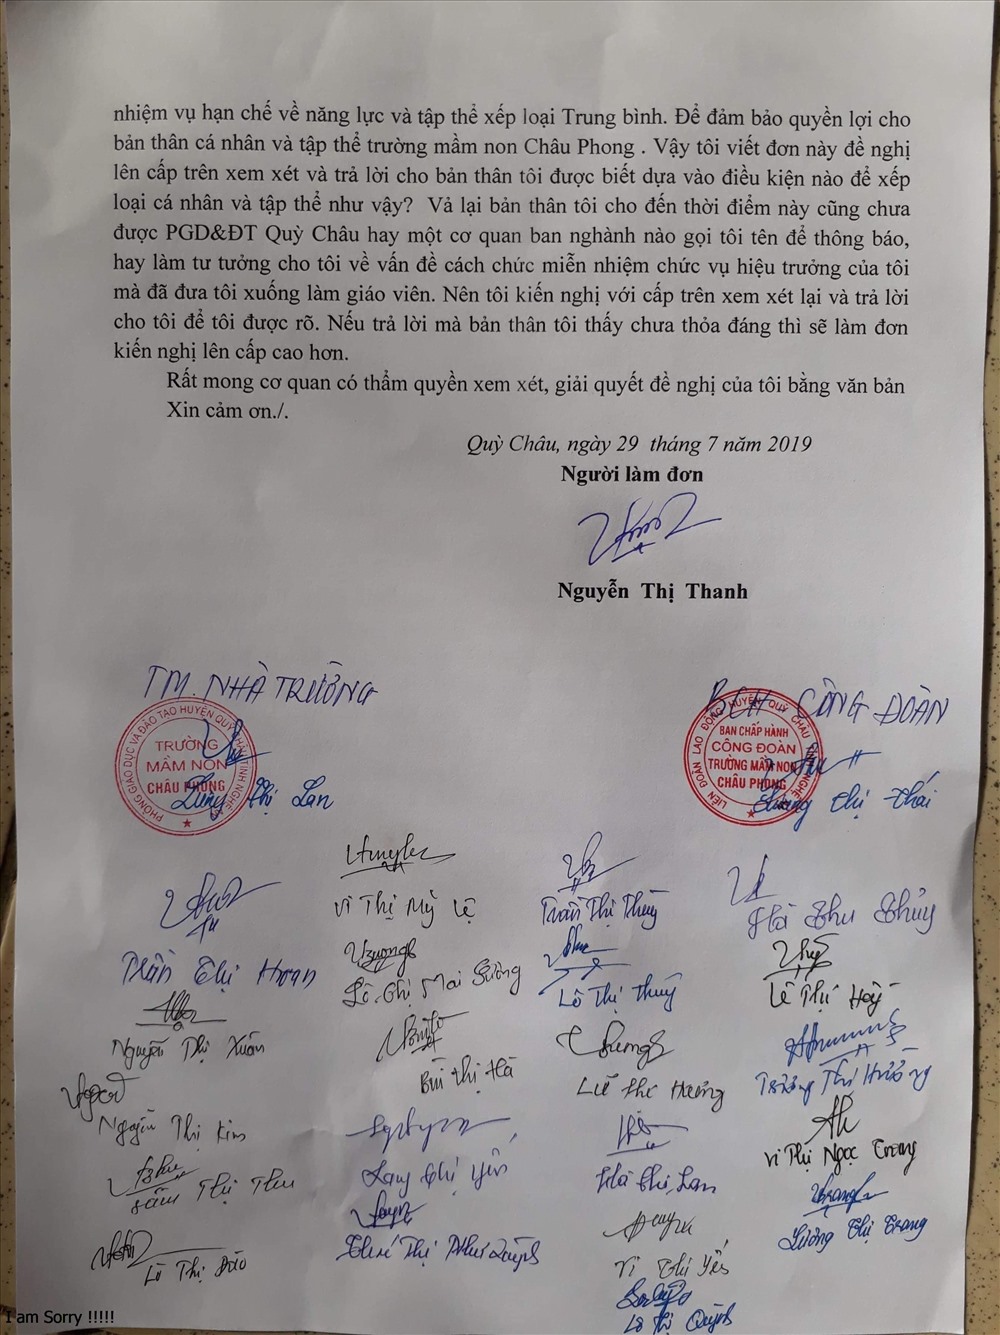 nhiệm vụ hạn chế về năng lực và tập thể xếp loại Trung bình. Để đảm bảo quyền lợi cho
bản thân cá nhân và tập thể trường mầm non Châu Phong . Vậy tôi viết đơn này đề nghị
lên cấp trên xem xét và trả lời cho bản thân tôi được biết dựa vào điều kiện nào để xếp
loại cá nhân và tập thể như vậy? Vả lại bản thân tôi cho đến thời điểm này cũng chưa
được PGD&ĐT Quỳ Châu hay một cơ quan ban nghành nào gọi tôi tên để thông báo,
hay làm tư tưởng cho tôi về vấn đề cách chức miễn nhiệm chức vụ hiệu trưởng của tôi
mà đã đưa tôi xuống làm giáo viên. Nên tôi kiến nghị với cấp trên xem xét lại và trả lời
cho tôi để tôi được rõ. Nếu trả lời mà bản thân tôi thấy chưa thỏa đáng thì sẽ làm đơn
kiến nghị lên cấp cao hơn.
Rất mong cơ quan có thẩm quyền xem xét, giải quyết đề nghị của tôi bằng văn bản
Xin cảm ơn./.
Quỳ Châu, ngày 29 tháng 7 năm 2019
Người làm đơn
Nguyễn Thị Thanh
TM. NHÀ TRƯỜNG
BCH CÔNG ĐOÀN
PHÒNG GIÁO DỤC VÀ ĐÀO TẠO HUYỆN QUỲ CHÂU TỈNH NGHỆ AN
TRƯỜNG
MẦM NON
CHÂU PHONG
Thị Lan
LIÊN ĐOÀN LAO ĐỘNG HUYỆN QUỲ CHÂU TỈNH NGHỆ AN
BAN CHẤP HÀNH
CÔNG ĐOÀN
TRƯỜNG MẦM NON
CHÂU PHONG
Thị Thái
Vi Thị Mỹ Lệ
Trần Thị Thùy
Hà Thu Thủy
Trần Thị Hoan
Lô Thị Mai Sương
Lô Thị Thuý
Lê Thị
Nguyễn Thị Xuân
Bùi Thị Hà
Lữ Thị Hương
Trương Thị Hường
Nguyễn Thị Kim
Lang Thị Yến
Hà Thị Lan
Vi Thị Ngọc Trang
Sầm Thị Thu
Thị Như Quỳnh
Vi Thị Yến
Lương Thị Trang
Lô Thị Đào
Lô Thị Quỳnh
I am Sorry !!!!!